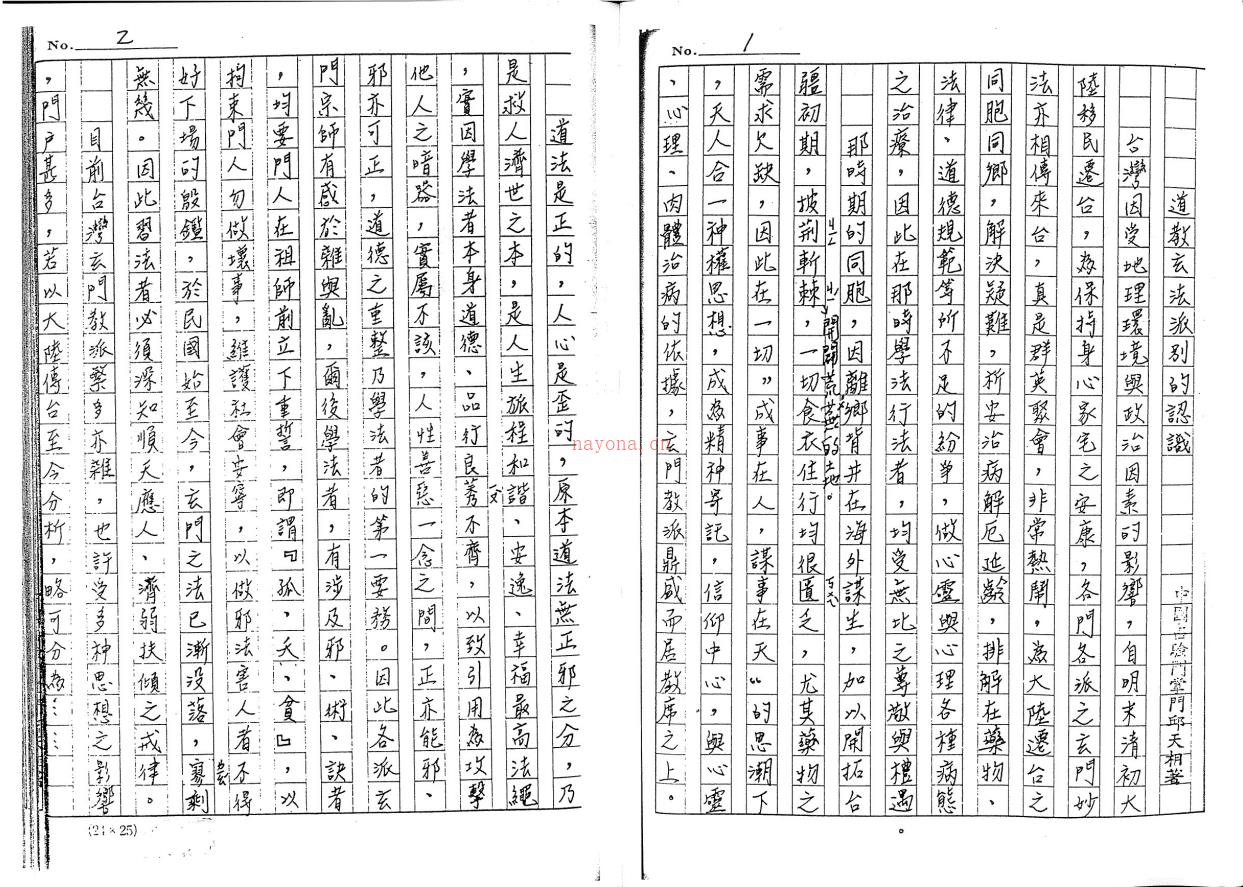 No. 1
道教玄法派別的認識 中國占驗門掌門邱天相著
台灣因受地理環境與政治因素的影響,自明末清初大
陸移民遷台,為保持身心家宅之安康,各門各派之玄門妙
法亦相傳來台,真是群英聚會,非常熱鬧,為大陸遷台之
同胞同鄉,解決疑難,祈安治病解厄延齡,排解在藥物、
法律、道德規範等所不足的紛爭,做心靈與心理各種病態
之治療,因此在那時學法行法者,均受無比之尊敬與禮遇。
那時期的同胞,因離鄉背井在海外謀生,加以開拓台
疆初期,披荊斬棘,開闢荒蕪的土地。一切食衣住行均很匱乏,尤其藥物之
需求欠缺,因此在一切〝成事在人,謀事在天〞的思潮下
,天人合一神權思想,成為精神寄託,信仰中心,與心靈
、心理、肉體治病的依據,玄門教派鼎盛而居教席之上。
No. 2
道法是正的,人心是歪的,原本道法無正邪之分,乃
是救人濟世之本,是人生旅程和諧、安逸、幸福最高法繩
,實因學法者本身道德、品行良莠不齊,以致引用為攻擊
他人之暗器,實屬不該,人性善惡一念之間,正亦能邪、
邪亦可正,道德之重整乃學法者的第一要務。因此各派玄
門宗師有感於雜與亂,爾後學法者,有涉及邪、術、訣者
,均要門人在祖師前立下重誓,即謂『孤、夭、貧』,以
拘束門人勿做壞事,維護社會安寧,以做邪法害人者不得
好下場的殷鑑,於民國始至今,玄門之法已漸沒落,寥剩
無幾。因此習法者必須深知順天應人、濟弱扶傾之戒律。
目前台灣玄門教派繁多亦雜,也許受多神思想之影響
,門戶甚多,若以大陸傳台至今分析,略可分為……
(24×25)
nayona.cn